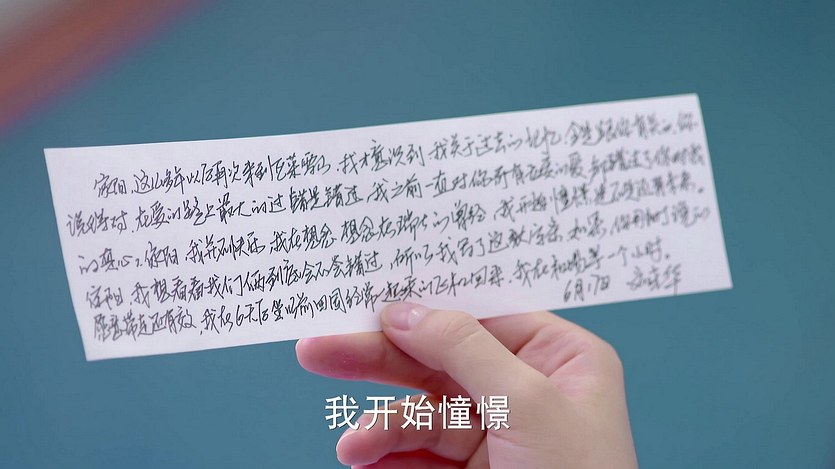 家阳，这么多年以后再次来到巴莱雪山，我才意识到，我关于过去的记忆，全是跟你有关的。你
说得对，在爱的路上最大的过错是错过，我之前一直对你所有的爱，却错过了你对我
的真心。家阳，我并不快乐，我在想念，想念在瑞士的曾经，我开始憧憬，是不是还有未来。
家阳，我想看看我们俩到底会不会错过，所以我写了这款字条，如果，你用到了说的
愿意带走还有效，我在6天后坐以前回国经常起来的飞机回来，我在机场等一个小时。
6月17日
我开始憧憬